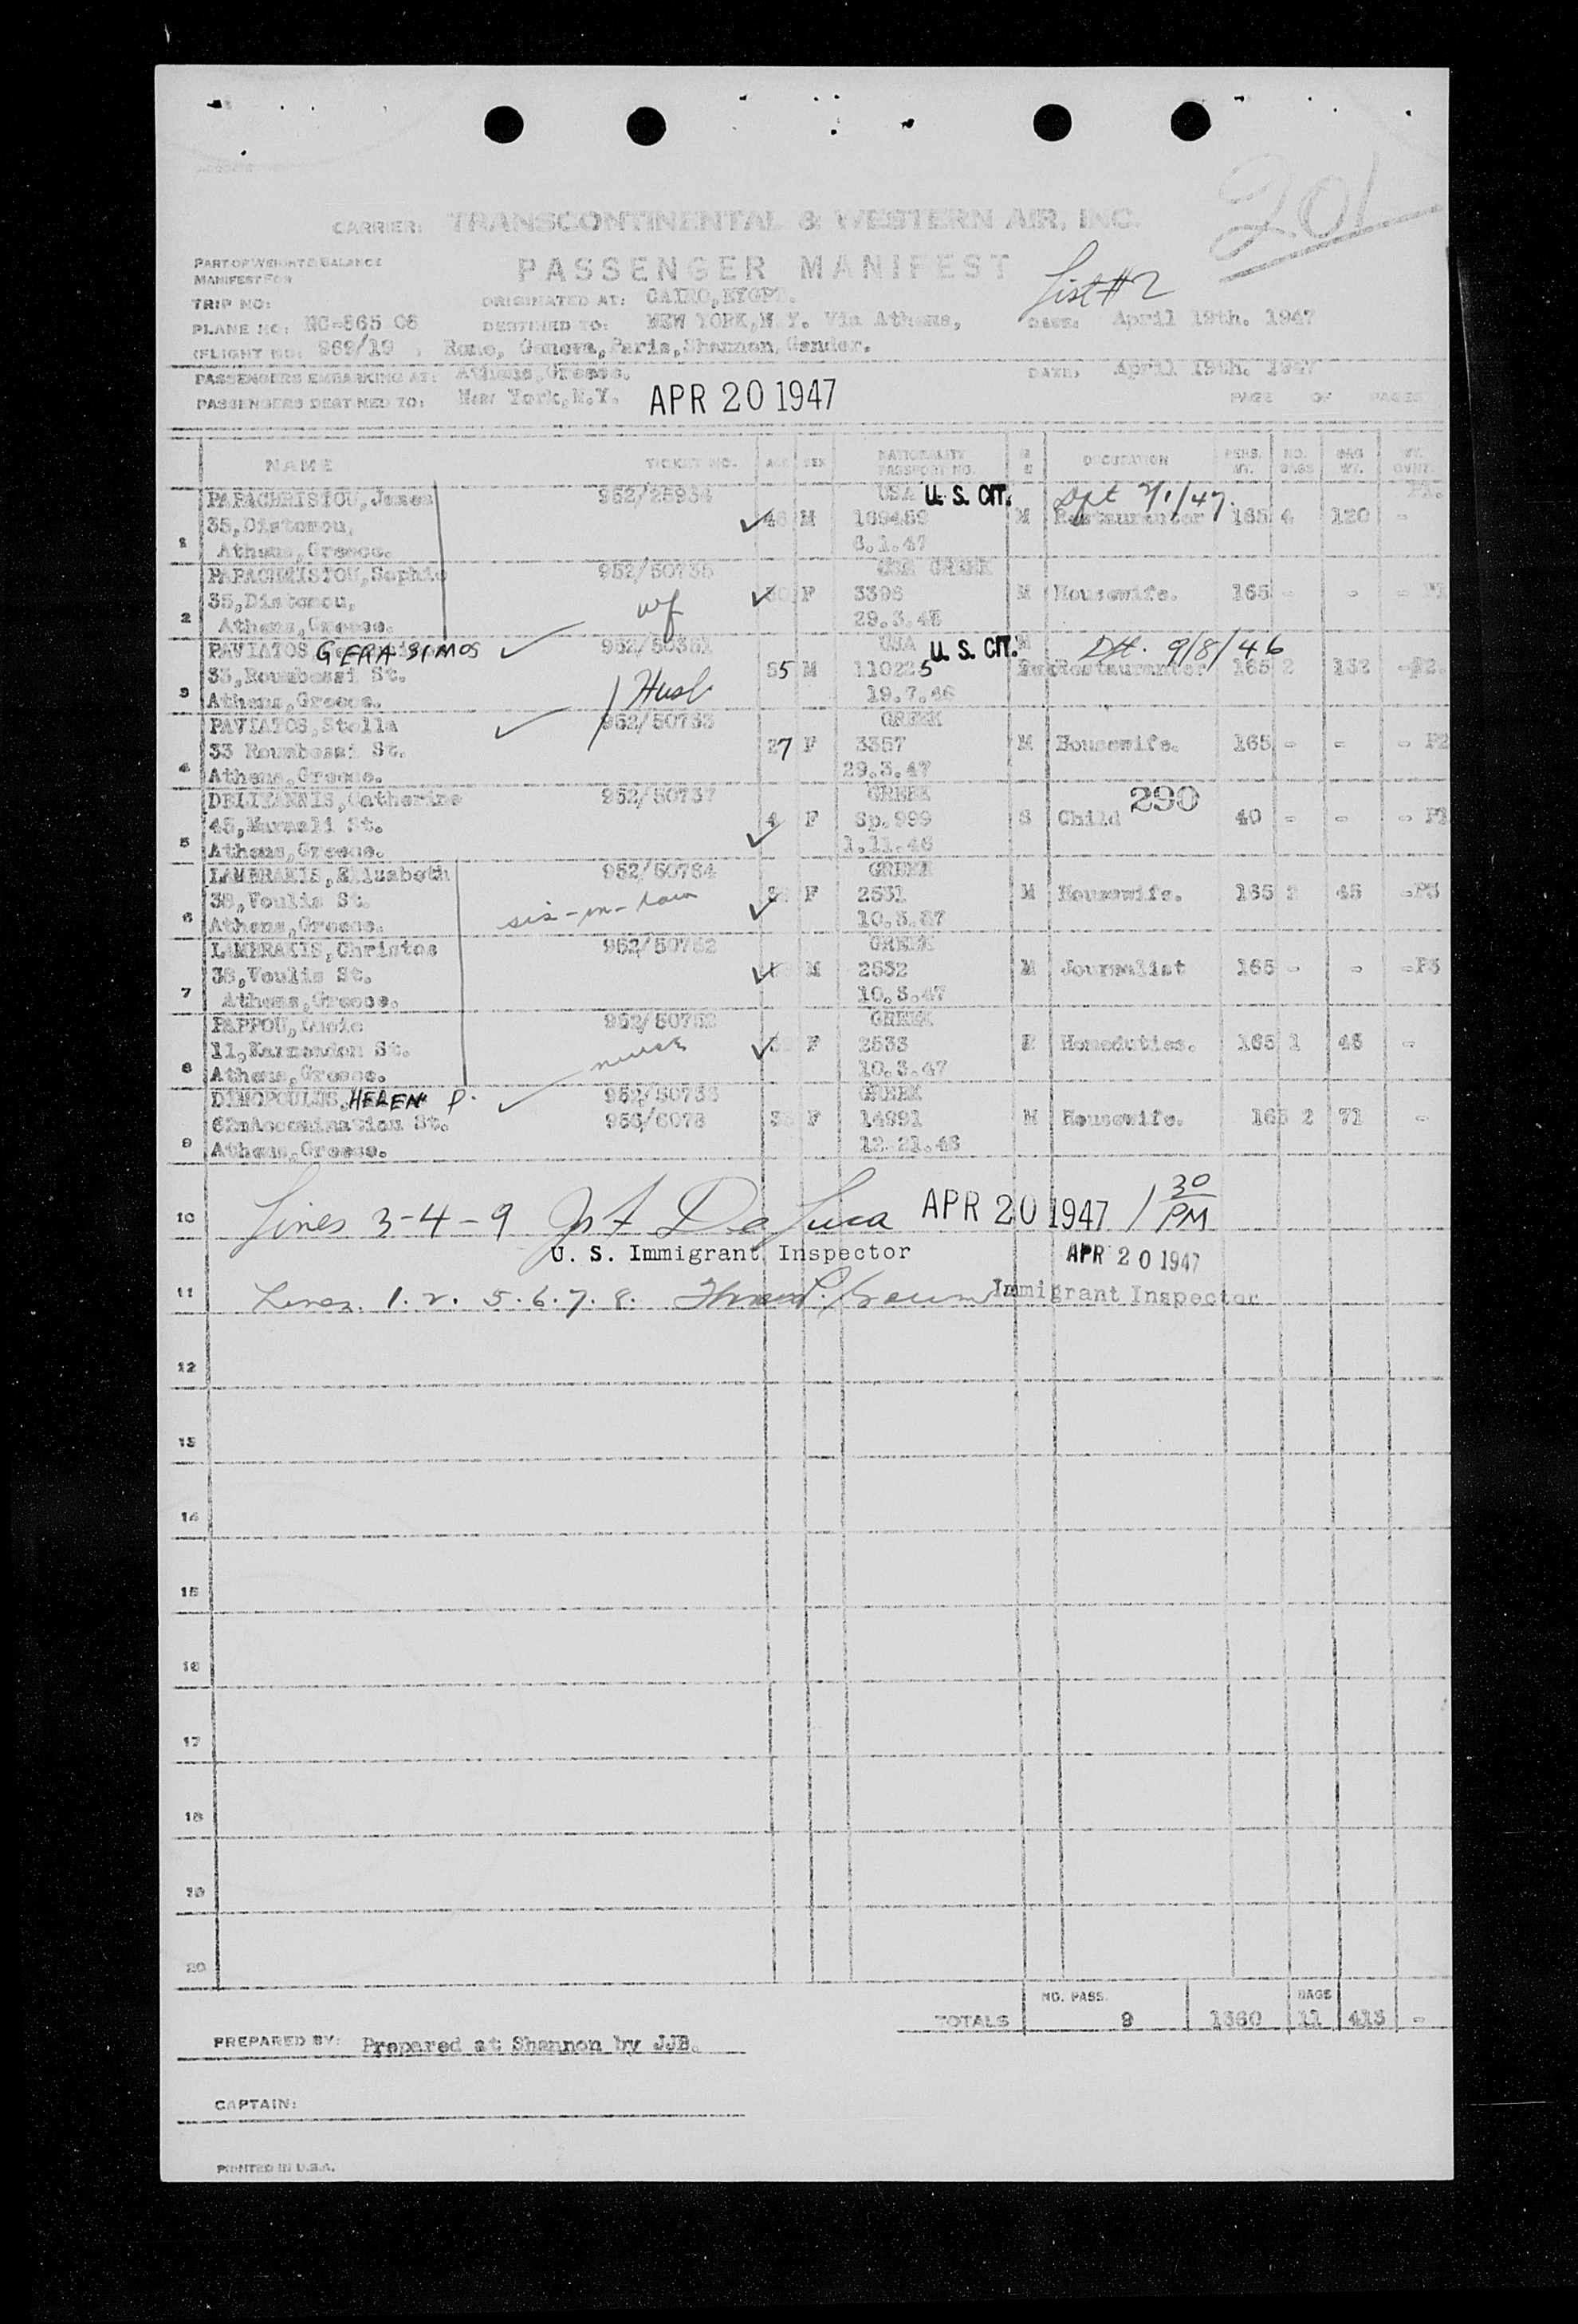 201
CARRIER: TRANSCONTINENTAL & WESTERN AIR, INC.
PART OF WEIGHT & BALANCE
MANIFEST FOR
PASSENGER MANIFEST
List #2
TRIP NO: ORIGINATED AT: CAIRO, EYGPT.
PLANE NO: NC-865 06 DESTINED TO: NEW YORK, N.Y. Via Athens, DATE: April 19th. 1947
(FLIGHT NO: 969/19 , Rome, Geneva, Paris, Shannon, Gander.
PASSENGERS EMBARKING AT: Athens, Greece. DATE: April 19th. 1947
PASSENGERS DESTINED TO: New York, N.Y. APR 20 1947 PAGE OF PAGES
NAME TICKET NO. AGE SEX NATIONALITY PASSPORT NO. OCCUPATION PERS. WT. NO. BAGS BAG WT.
PAPACHRISTOU, James 952/25934 USA U. S. CIT. Dpt
35, Distomou, M 169459 M Restauranter 165 4 120 -
1 Athens, Greece. 6.1.47
PAPACHRISTOU, Sophie 952/50735 GREEK
35, Distomou, wf F 3398 M Housewife. 165 - -
2 Athens, Greece. 29.3.47
PAVIATOS GERASIMOS 952/50361 USA U. S. CIT. Dpt. 9/8/46
33, Roumbessi St. 55 M 110225 Restauranter 165 2 132 -P2.
3 Athens, Greece. Husb 19.7.46
PAVIATOS, Stella 952/50733 GREEK
33 Roumbessi St. 27 F 3357 M Housewife. 165 - - - P2
4 Athens, Greece. 29.3.47
DELIYANNIS, Catherine 952/50737 GREEK 290
45, St. 4 F Sp. 999 S Child 40 - - -
5 Athens, Greece. 1.11.46
LAMBRAKIS, Elizabeth 952/50764 GREEK
38, Voulis St. sis-in-law F 2531 M Housewife. 165 2 45 -P3
6 Athens, Greece. 10.3.47
LAMBRAKIS, Christos 952/50762 GREEK
38, Voulis St. M 2532 M Journalist 165 - - -P3
7 Athens, Greece. 10.3.47
PAPPOU, 952/50752 GREEK
11, St. nurse F 2533 Homeduties. 165 1 46 -
8 Athens, Greece. 10.3.47
DIMOPOULOS, HELEN P. 952/50733 GREEK
St. 956/6078 35 F 14991 M Housewife. 165 2 71 -
9 Athens, Greece. 12.21.46
10 Lines 3-4-9 Jos F DeLuca APR 20 1947 1 30 PM
U. S. Immigrant Inspector APR 20 1947
11 Lines 1. 2. 5. 6. 7. 8. Immigrant Inspector
12
13
14
15
16
17
18
19
20
NO. PASS. BAGS
TOTALS 9 1360 11 413 -
PREPARED BY: Prepared at Shannon by JJB.
CAPTAIN:
PRINTED IN U.S.A.